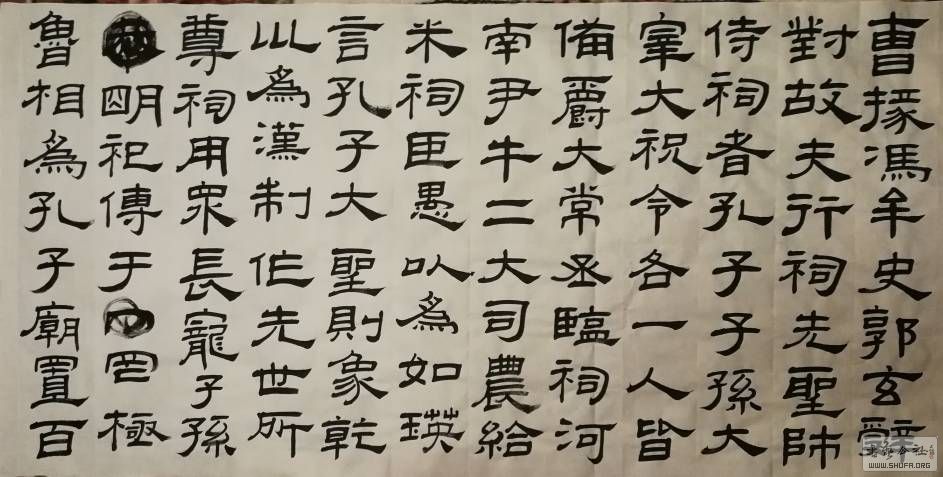 曹掾馮牟史郭玄辭
對故夫行祠先聖師
侍祠者孔子子孫大
宰大祝令各一人皆
備爵大常丞臨祠河
南尹牛二大司農給
米祠臣愚以為如瑛
言孔子大聖則象乾
㘴為漢制作先世所
尊祠用眾長寵子孫
明祀傳于罔極
魯相為孔子廟置百
WWW.SHUFA.ORG